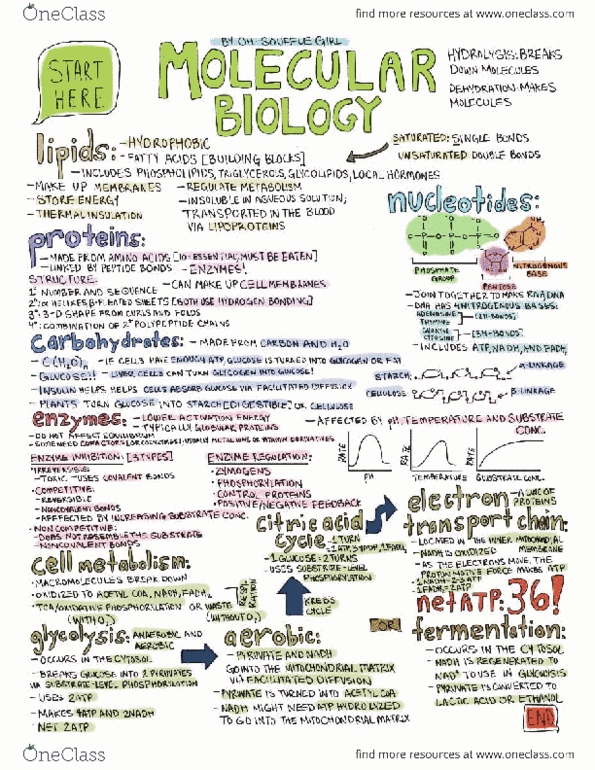 OneClass
find more resources at www.oneclass.com
BY OH SOUFFLE GIRL
START
HERE
MOLECULAR
BIOLOGY
HYDROLYSIS: BREAKS
DOWN MOLECULES
DEHYDRATION: MAKES
MOLECULES
lipids:
-HYDROPHOBIC
- FATTY ACIDS [BUILDING BLOCKS]
SATURATED: SINGLE BONDS
UNSATURATED: DOUBLE BONDS
-INCLUDES PHOSPHOLIPIDS, TRIGLYCEROLS, GLYCOLIPIDS, LOCAL HORMONES
-MAKE UP MEMBRANES
-STORE ENERGY
-THERMAL INSULATION
-REGULATE METABOLISM
-INSOLUBLE IN AQUEOUS SOLUTION;
TRANSPORTED IN THE BLOOD
VIA LIPOPROTEINS
nucleotides:
PHOSPHATE
GROUP
PENTOSE
NITROGENOUS
BASE
-JOIN TOGETHER TO MAKE RNA/DNA
-DNA HAS 4 NITROGENOUS BASES:
ADENOSINE
THYMINE
[2H-BONDS]
GUANINE
CYTOSINE
[3H-BONDS]
-INCLUDES ATP, NADH, AND FADH2
proteins:
-MADE FROM AMINO ACIDS [10=ESSENTIAL, MUST BE EATEN]
-LINKED BY PEPTIDE BONDS
-ENZYMES!
STRUCTURE
-CAN MAKE UP CELL MEMBRANES
1° NUMBER AND SEQUENCE
2° α HELIXES β-PLEATED SHEETS [BOTH USE HYDROGEN BONDING]
3° 3-D SHAPE FROM CURLS AND FOLDS
4° COMBINATION OF 2+ POLYPEPTIDE CHAINS
carbohydrates:
-MADE FROM CARBON AND H2O
-C(H2O)n
-GLUCOSE!!
-IF CELLS HAVE ENOUGH ATP, GLUCOSE IS TURNED INTO GLYCOGEN OR FAT
-LIVER CELLS CAN TURN GLYCOGEN INTO GLUCOSE!
-INSULIN HELPS HELPS CELLS ABSORB GLUCOSE VIA FACILITATED DIFFUSION
-PLANTS TURN GLUCOSE INTO STARCH [DIGESTIBLE] OR CELLULOSE
STARCH:
α-LINKAGE
CELLULOSE
β-LINKAGE
enzymes:
-LOWER ACTIVATION ENERGY
-TYPICALLY GLOBULAR PROTEINS
-AFFECTED BY pH, TEMPERATURE AND SUBSTRATE
CONC.
-DO NOT AFFECT EQUILIBRIUM
-SOME NEED COFACTORS (OR COENZYMES) USUALLY METAL IONS OR VITAMIN DERIVATIVES
RATE
PH
RATE
TEMPERATURE
RATE
SUBSTRATE CONC.
ENZYME INHIBITION: [3 TYPES]
·IRREVERSIBLE
-TOXIC -USES COVALENT BONDS
·COMPETITIVE:
-REVERSIBLE
-NONCOVALENT BONDS
-AFFFECTED BY INCREASING SUBSTRATE CONC.
·NONCOMPETITIVE:
-DOES NOT RESEMBLE THE SUBSTRATE
-NONCOVALENT BONDS
ENZYME REGULATION:
·ZYMOGENS
·PHOSPHORYLATION
·CONTROL PROTEINS
·POSITIVE/NEGATIVE FEEDBACK
citric acid
cycle:
-1 TURN
-1 GLUCOSE=2 TURNS
-USES SUBSTRATE-LEVEL
PHOSPHORYLATION
KREBS
CYCLE
electron
transport chain:
-A LINE OF
PROTEINS
-LOCATED ON THE INNER MITOCHONDRIAL
MEMBRANE
-NADH IS OXIDIZED
-AS THE ELECTRONS MOVE, THE
PROTON MOTIVE FORCE MAKES ATP
-1NADH=2-3 ATP
-1FADH2=2ATP
net ATP: 36!
cell metabolism:
-MACROMOLECULES BREAK DOWN
-OXIDIZED TO ACETYL COA, NADH, FADH2
-TCA/OXIDATIVE PHOSPHORYLATION OR WASTE
(WITH O2)
(WITHOUT O2)
RESPIRATION
glycolysis:
ANAEROBIC AND
AEROBIC
-OCCURS IN THE CYTOSOL
-BREAKS GLUCOSE INTO 2 PYRUVATES
VIA SUBSTRATE-LEVEL PHOSPHORYLATION
-USES 2ATP
-MAKES 4ATP AND 2NADH
-NET 2ATP
aerobic:
-PYRUVATE AND NADH
GO INTO THE MITOCHONDRIAL MATRIX
VIA FACILITATED DIFFUSION
-PYRUVATE IS TURNED INTO ACETYL COA
-NADH MIGHT NEED ATP HYDROLIZED
TO GO INTO THE MITOCHONDRIAL MATRIX
OR
fermentation:
-OCCURS IN THE CYTOSOL
-NADH IS REGENERATED TO
NAD+ TO USE IN GLYCOLYSIS
-PYRUVATE IS CONVERTED TO
LACTIC ACID OR ETHANOL
END
OneClass
find more resources at www.oneclass.com